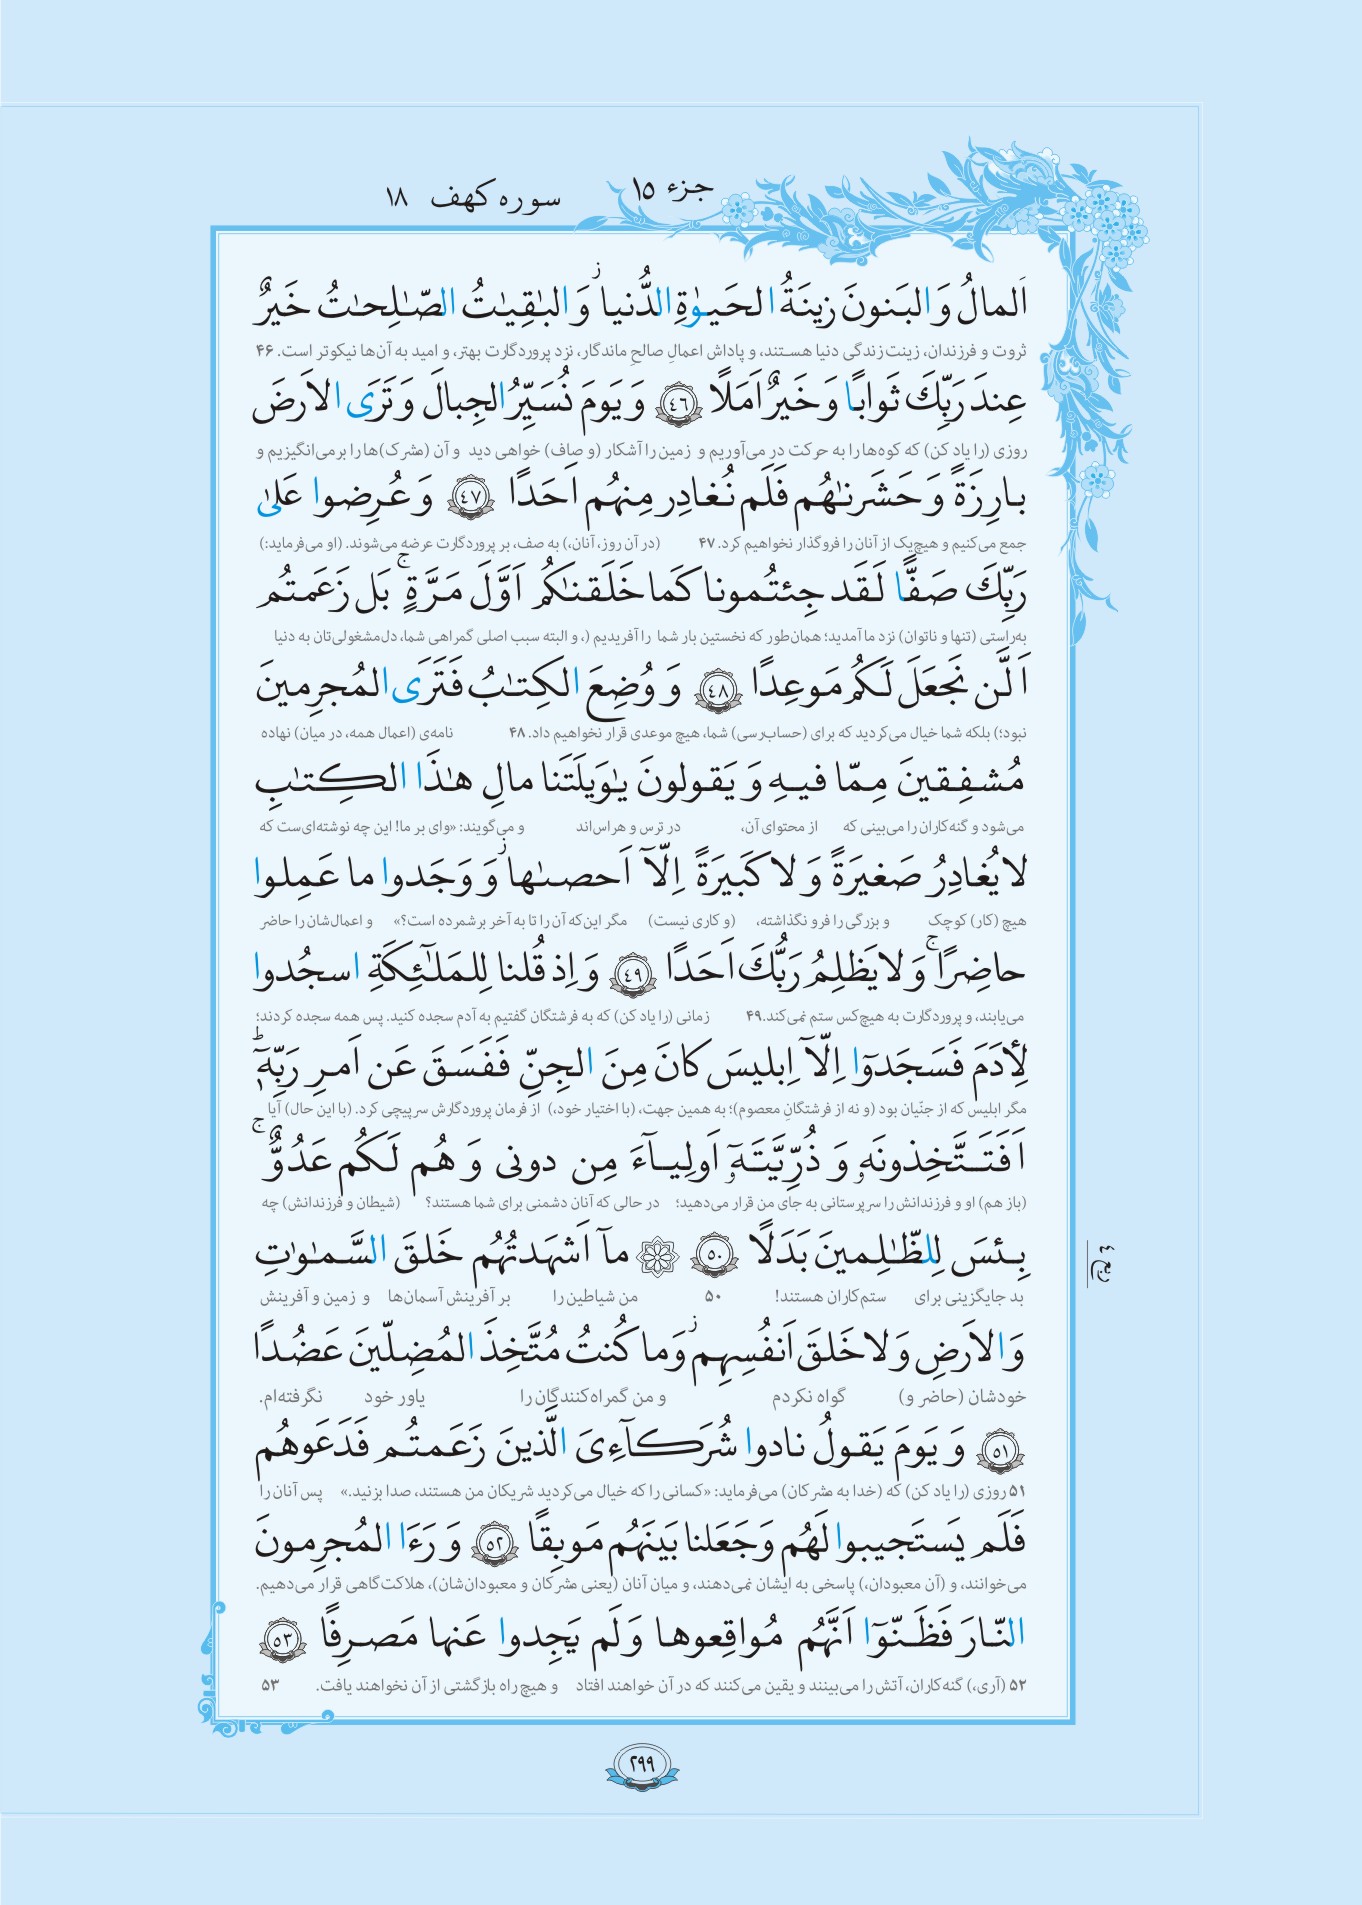 جزء ۱۵
سوره کهف ۱۸
اَلمالُ وَ البَنونَ زینَةُ الحَیـوٰةِ الدُّنیا ۖز وَ البـٰقِیـٰتُ الصّـٰلِحـٰتُ خَیرٌ
ثروت و فرزندان، زینت زندگی دنیا هستند، و پاداش اعمالِ صالحِ ماندگار، نزد پروردگارت بهتر، و امید به آن‌ها نیکوتر است. ۴۶
عِندَ رَبِّكَ ثَوابًا وَ خَیرٌ اَمَلًا ﴿٤٦﴾ وَ یَومَ نُسَیِّرُ الجِبالَ وَ تَرَی الاَرضَ
روزی (را یاد کن) که کوه‌ها را به حرکت در می‌آوریم و زمین را آشکار (و صاف) خواهی دید و آن (مشرک)ها را برمی‌انگیزیم و
بارِزَةً وَ حَشَرنـٰهُم فَلَم نُغادِر مِنهُم اَحَدًا ﴿٤٧﴾ وَ عُرِضوا عَلیٰ
جمع می‌کنیم و هیچ‌یک از آنان را فروگذار نخواهیم کرد. ۴۷ (در آن روز، آنان،) به صف، بر پروردگارت عرضه می‌شوند. (او می‌فرماید:)
رَبِّكَ صَفًّا لَقَد جِئتُمونا کَما خَلَقنـٰکُم اَوَّلَ مَرَّةٍ ۚ بَل زَعَمتُم
به‌راستی (تنها و ناتوان) نزد ما آمدید؛ همان‌طور که نخستین بار شما را آفریدیم (، و البته سبب اصلی گمراهی شما، دل‌مشغولی‌تان به دنیا
اَلَّن نَجعَلَ لَکُم مَوعِدًا ﴿٤٨﴾ وَ وُضِعَ الکِتـٰبُ فَتَرَی المُجرِمینَ
نبود؛) بلکه شما خیال می‌کردید که برای (حساب‌رسی) شما، هیچ موعدی قرار نخواهیم داد. ۴۸ نامه‌ی (اعمال همه، در میان) نهاده
مُشفِقینَ مِمّا فیهِ وَ یَقولونَ یـٰوَیلَتَنا مالِ هـٰذَا الکِتـٰبِ
می‌شود و گنه‌کاران را می‌بینی که از محتوای آن، در ترس و هراس‌اند و می‌گویند: «وای بر ما! این چه نوشته‌ای‌ست که
لا یُغادِرُ صَغیرَةً وَ لا کَبیرَةً اِلّآ اَحصـٰها ۖز وَ وَجَدوا ما عَمِلوا
هیچ (کار) کوچک و بزرگی را فرو نگذاشته، (و کاری نیست) مگر این‌که آن را تا به آخر برشمرده است؟» و اعمال‌شان را حاضر
حاضِرًا ۚ وَ لا یَظلِمُ رَبُّكَ اَحَدًا ﴿٤٩﴾ وَ اِذ قُلنا لِلمَلـٰٓئِکَةِ اسجُدوا
می‌یابند، و پروردگارت به هیچ‌کس ستم نمی‌کند. ۴۹ زمانی (را یاد کن) که به فرشتگان گفتیم به آدم سجده کنید. پس همه سجده کردند؛
لِأدَمَ فَسَجَدوٓا اِلّآ اِبلیسَ کانَ مِنَ الجِنِّ فَفَسَقَ عَن اَمرِ رَبِّهٖٓ ؕ
مگر ابلیس که از جنّیان بود (و نه از فرشتگانِ معصوم)؛ به همین جهت، (با اختیار خود،) از فرمان پروردگارش سرپیچی کرد. (با این حال) آیا
اَفَتَتَّخِذونَهٗ وَ ذُرِّیَّتَهٗٓ اَولِیآءَ مِن دونی وَ هُم لَکُم عَدُوٌّ ۚ
(باز هم) او و فرزندانش را سرپرستانی به جای من قرار می‌دهید؛ در حالی که آنان دشمنی برای شما هستند؟ (شیطان و فرزندانش) چه
بِئسَ لِلظّـٰلِمینَ بَدَلًا ﴿٥٠﴾ مآ اَشهَدتُهُم خَلقَ السَّمـٰوٰتِ
بد جایگزینی برای ستم‌کاران هستند! ۵۰ من شیاطین را بر آفرینش آسمان‌ها و زمین و آفرینش
وَ الاَرضِ وَ لا خَلقَ اَنفُسِهِم ۖز وَ ما کُنتُ مُتَّخِذَ المُضِلّینَ عَضُدًا
خودشان (حاضر و) گواه نکردم و من گمراه‌کنندگان را یاور خود نگرفته‌ام.
﴿٥١﴾ وَ یَومَ یَقولُ نادوا شُرَکآءِیَ الَّذینَ زَعَمتُم فَدَعَوهُم
۵۱ روزی (را یاد کن) که (خدا به مشرکان) می‌فرماید: «کسانی را که خیال می‌کردید شریکان من هستند، صدا بزنید.» پس آنان را
فَلَم یَستَجیبوا لَهُم وَ جَعَلنا بَینَهُم مَوبِقًا ﴿٥٢﴾ وَ رَءَا المُجرِمونَ
می‌خوانند، و (آن معبودان،) پاسخی به ایشان نمی‌دهند، و میان آنان (یعنی مشرکان و معبودان‌شان)، هلاکت‌گاهی قرار می‌دهیم.
النّارَ فَظَنّوٓا اَنَّهُم مُواقِعوها وَ لَم یَجِدوا عَنها مَصرِفًا ﴿٥٣﴾
۵۲ (آری،) گنه‌کاران، آتش را می‌بینند و یقین می‌کنند که در آن خواهند افتاد و هیچ راه بازگشتی از آن نخواهند یافت. ۵۳
ربع ٤
۲۹۹